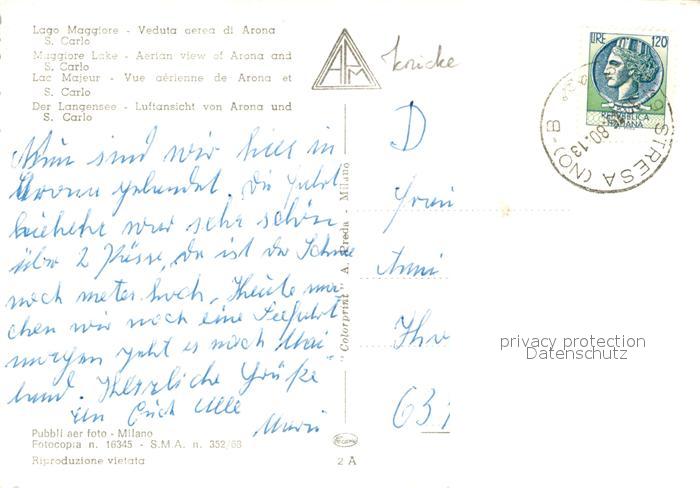 Lago Maggiore - Veduta aerea di Arona
S. Carlo
Maggiore Lake - Aerian view of Arona and
S. Carlo
Lac Majeur - Vue aérienne de Arona et
S. Carlo
Der Langensee - Luftansicht von Arona und
S. Carlo
APM
knicke
LIRE 120
REPUBBLICA
ITALIANA
STRESA (NO) - B
80.13
Nun sind wir hier in
Arona gelandet. Die Fahrt
hieher war sehr schön
über 2 Pässe, da ist der Schnee
noch meter hoch. Heute ma-
chen wir noch eine Seefahrt
morgen geht es nach Mai
land. Herzliche Grüße
an Euch alle
Maria
D
Frau
Anni
63
"Colorprint" A. Preda - Milano
privacy protection
Datenschutz
Pubbli aer foto - Milano
Fotocopia n. 16345 - S.M.A. n. 352/68
Riproduzione vietata
2 A